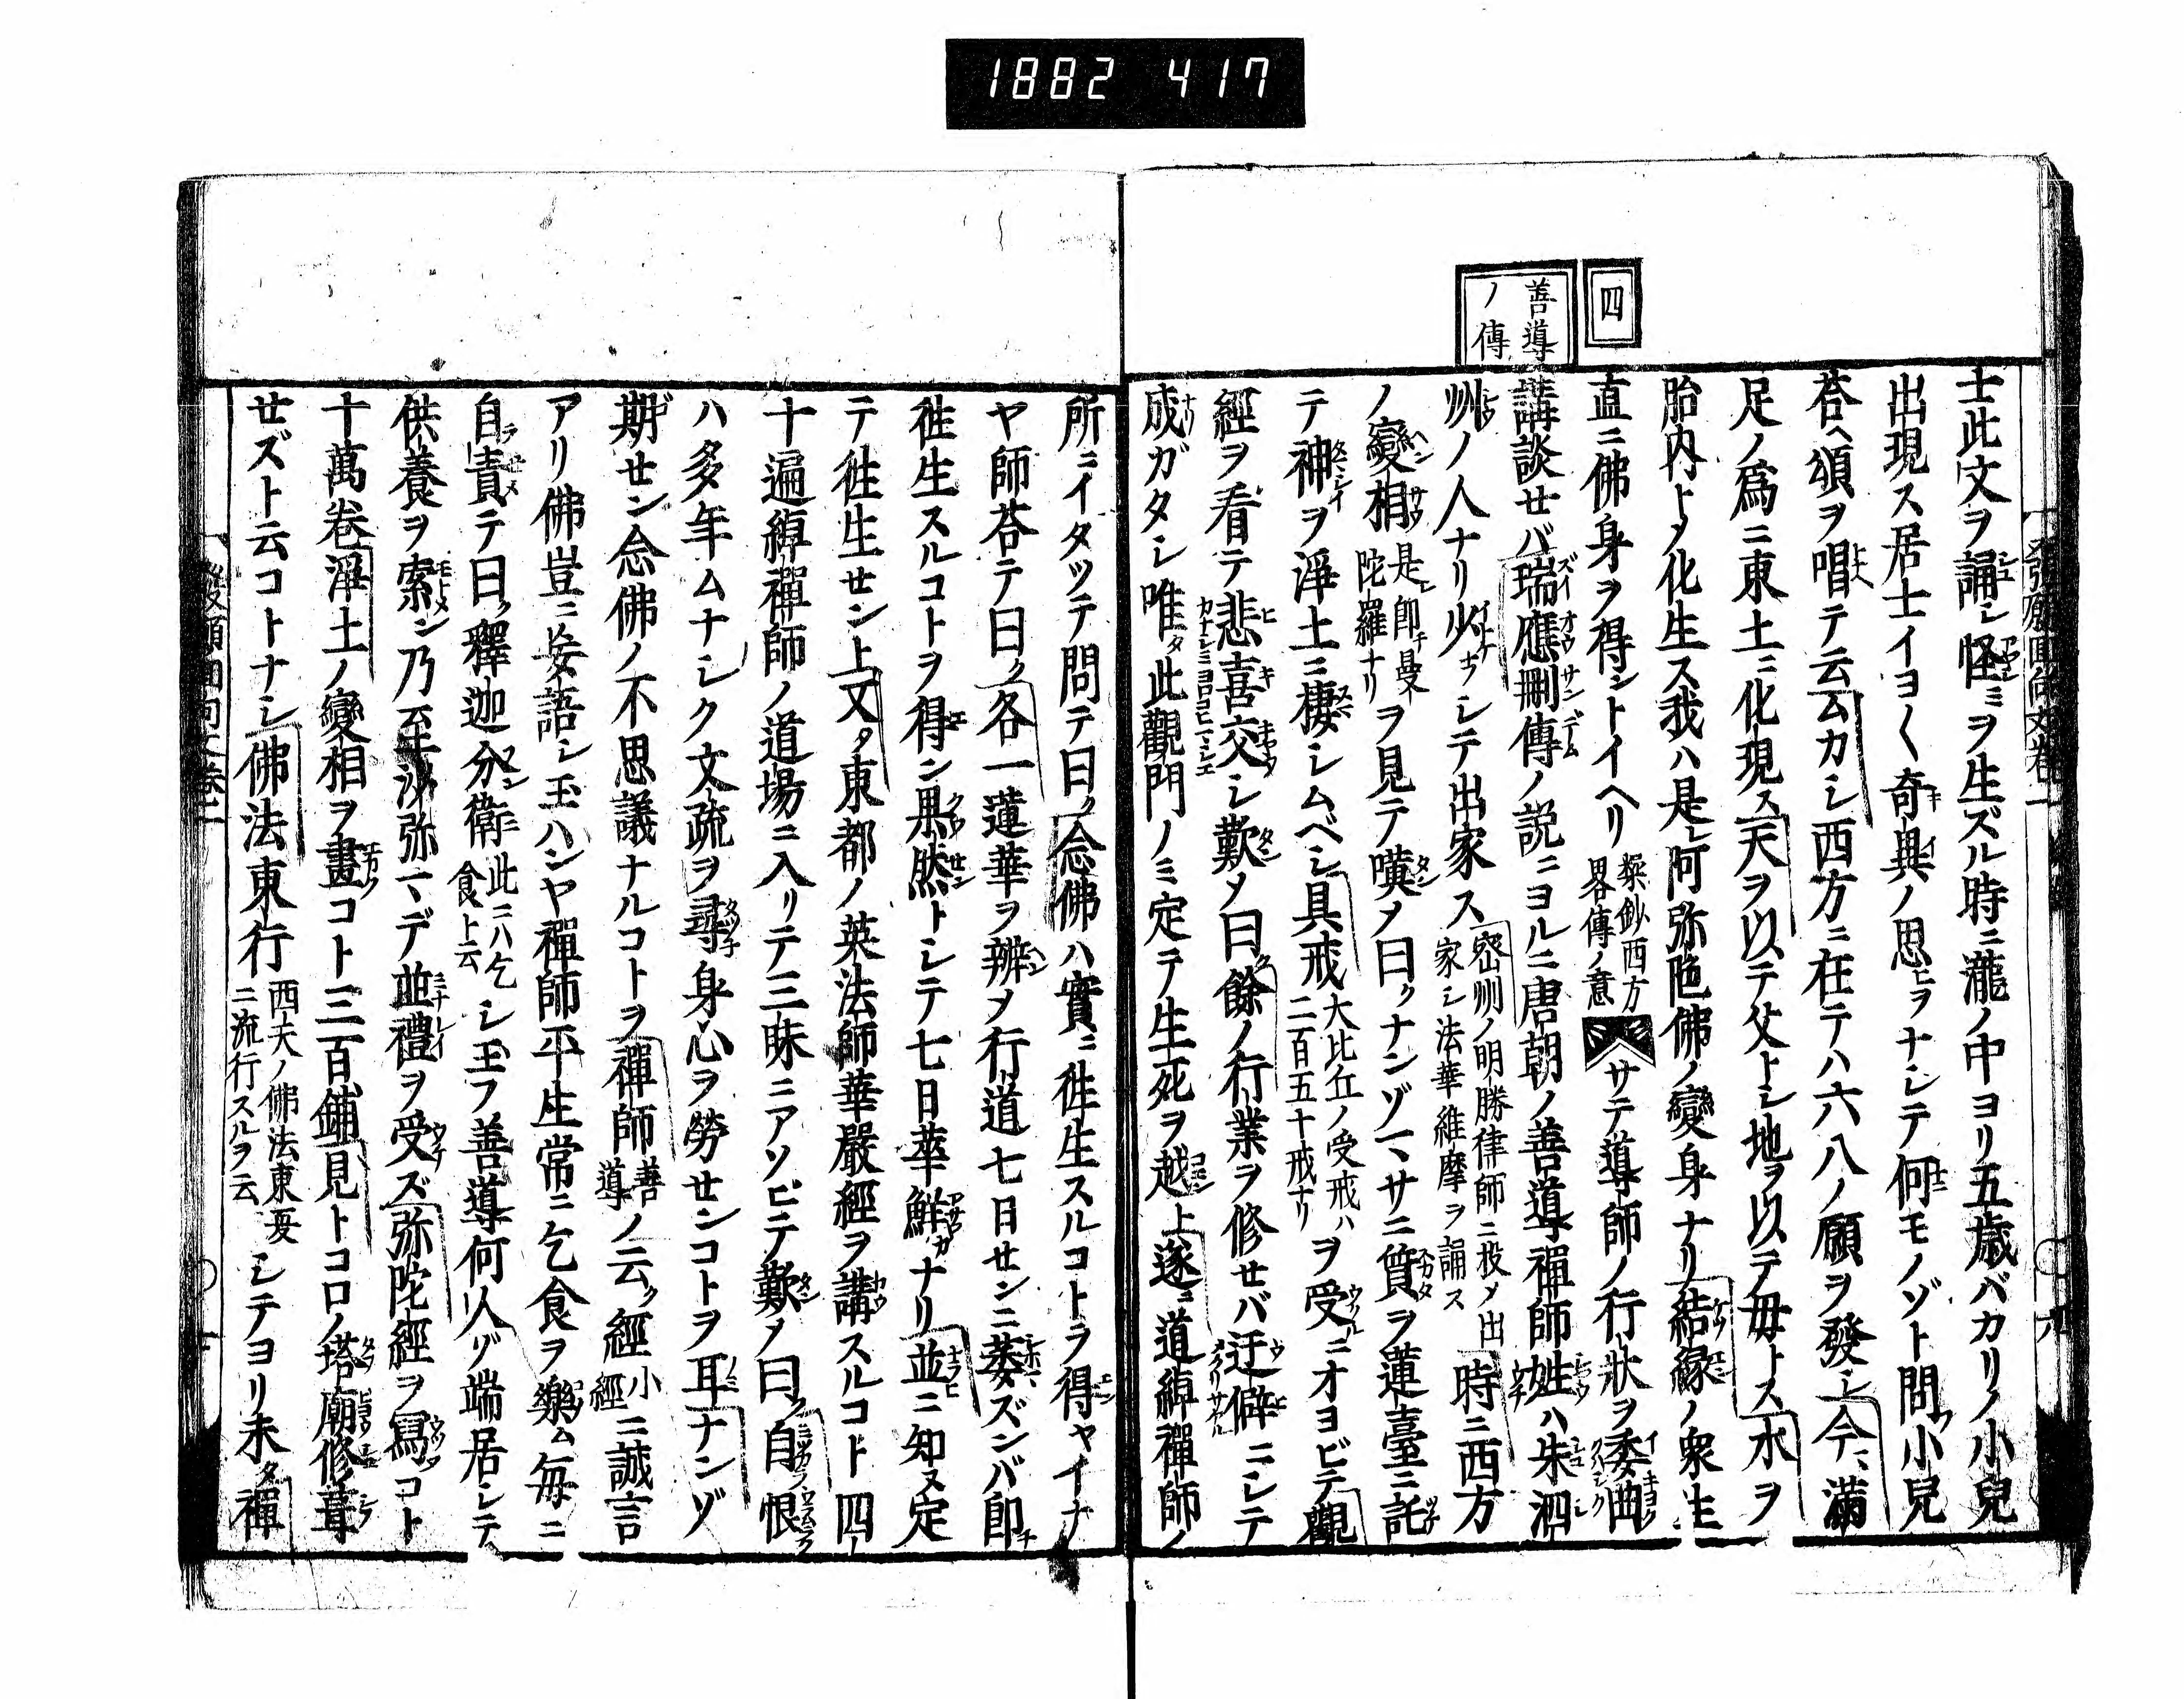 1882 417
四
善導
ノ傳
士此文ヲ誦シ怪ミヲ生ズル時ニ瀧ノ中ヨリ五歳バカリノ小兒
出現ス居士イヨ〱奇異ノ思ヒヲナシテ何モノゾト問フ小兒
荅ヘ頌ヲ唱テ云ムカシ西方ニ在テハ六八ノ願ヲ發シ今ハ滿
足ノ爲ニ東土ニ化現ス天ヲ以テ父トシ地ヲ以テ毋トス水ヲ
胎内トメ化生ス我ハ是レ阿弥陁佛ノ變身ナリ結縁ノ衆生
直ニ佛身ヲ得ントイヘリ 楽鈔西方畧傳ノ意 サテ導師ノ行狀ヲ委曲
講談せバ瑞應刪傳ノ説ニヨルニ唐朝ノ善導禪師姓ハ朱泗
州ノ人ナリ少フシテ出家ス 密州ノ明勝律師ニ投メ出家シ法華維摩ヲ誦ス 時ニ西方
ノ變相 是レ即チ曼陀羅ナリ ヲ見テ嘆メ曰クナンゾマサニ質ヲ蓮臺ニ託
テ神ヲ淨土ニ棲シムベシ具戒 大比丘ノ受戒ハ二百五十戒ナリ ヲ受ニオヨビテ觀
經ヲ看テ悲喜交シ歎メ曰ク餘ノ行業ヲ修せバ迂僻ニシテ
成ガタシ唯タ此觀門ノミ定テ生死ヲ越上遂ニ道綽禪師ノ
所ニイタツテ問テ曰ク念佛ハ實ニ徃生スルコトヲ得ヤイナ
ヤ師荅テ曰ク各一蓮華ヲ辨メ行道七日せンニ萎ズンバ即チ
徃生スルコトヲ得ン果然トシテ七日華鮮カナリ並ニ知ヌ定
テ徃生せン上文タ東都ノ英法師華嚴經ヲ講スルコト四
十遍綽禪師ノ道場ニ入リテ三昧ニアソビテ歎メ曰ク自恨
ハ多年ムナシク文疏ヲ尋子身心ヲ勞せンコトヲ耳ナンゾ
期せン念佛ノ不思議ナルコトヲ禪師 善導 ノ云ク經 小經 ニ誠言
アリ佛豈ニ妄語シ玉ハンヤ禪師平生常ニ乞食ヲ樂ム毎ニ
自責テ曰ク釋迦分衛 此ニハ乞食ト云 シ玉フ善導何人ゾ端居シテ
供養ヲ索ン乃至沙弥マデ並禮ヲ受ズ弥陀經ヲ寫コト
十萬卷淨土ノ變相ヲ畫コト三百鋪見トコロノ塔廟修葺
せズト云コトナシ佛法東行 西天ノ佛法東夏ニ流行スルヲ云 シテヨリ未タ禪